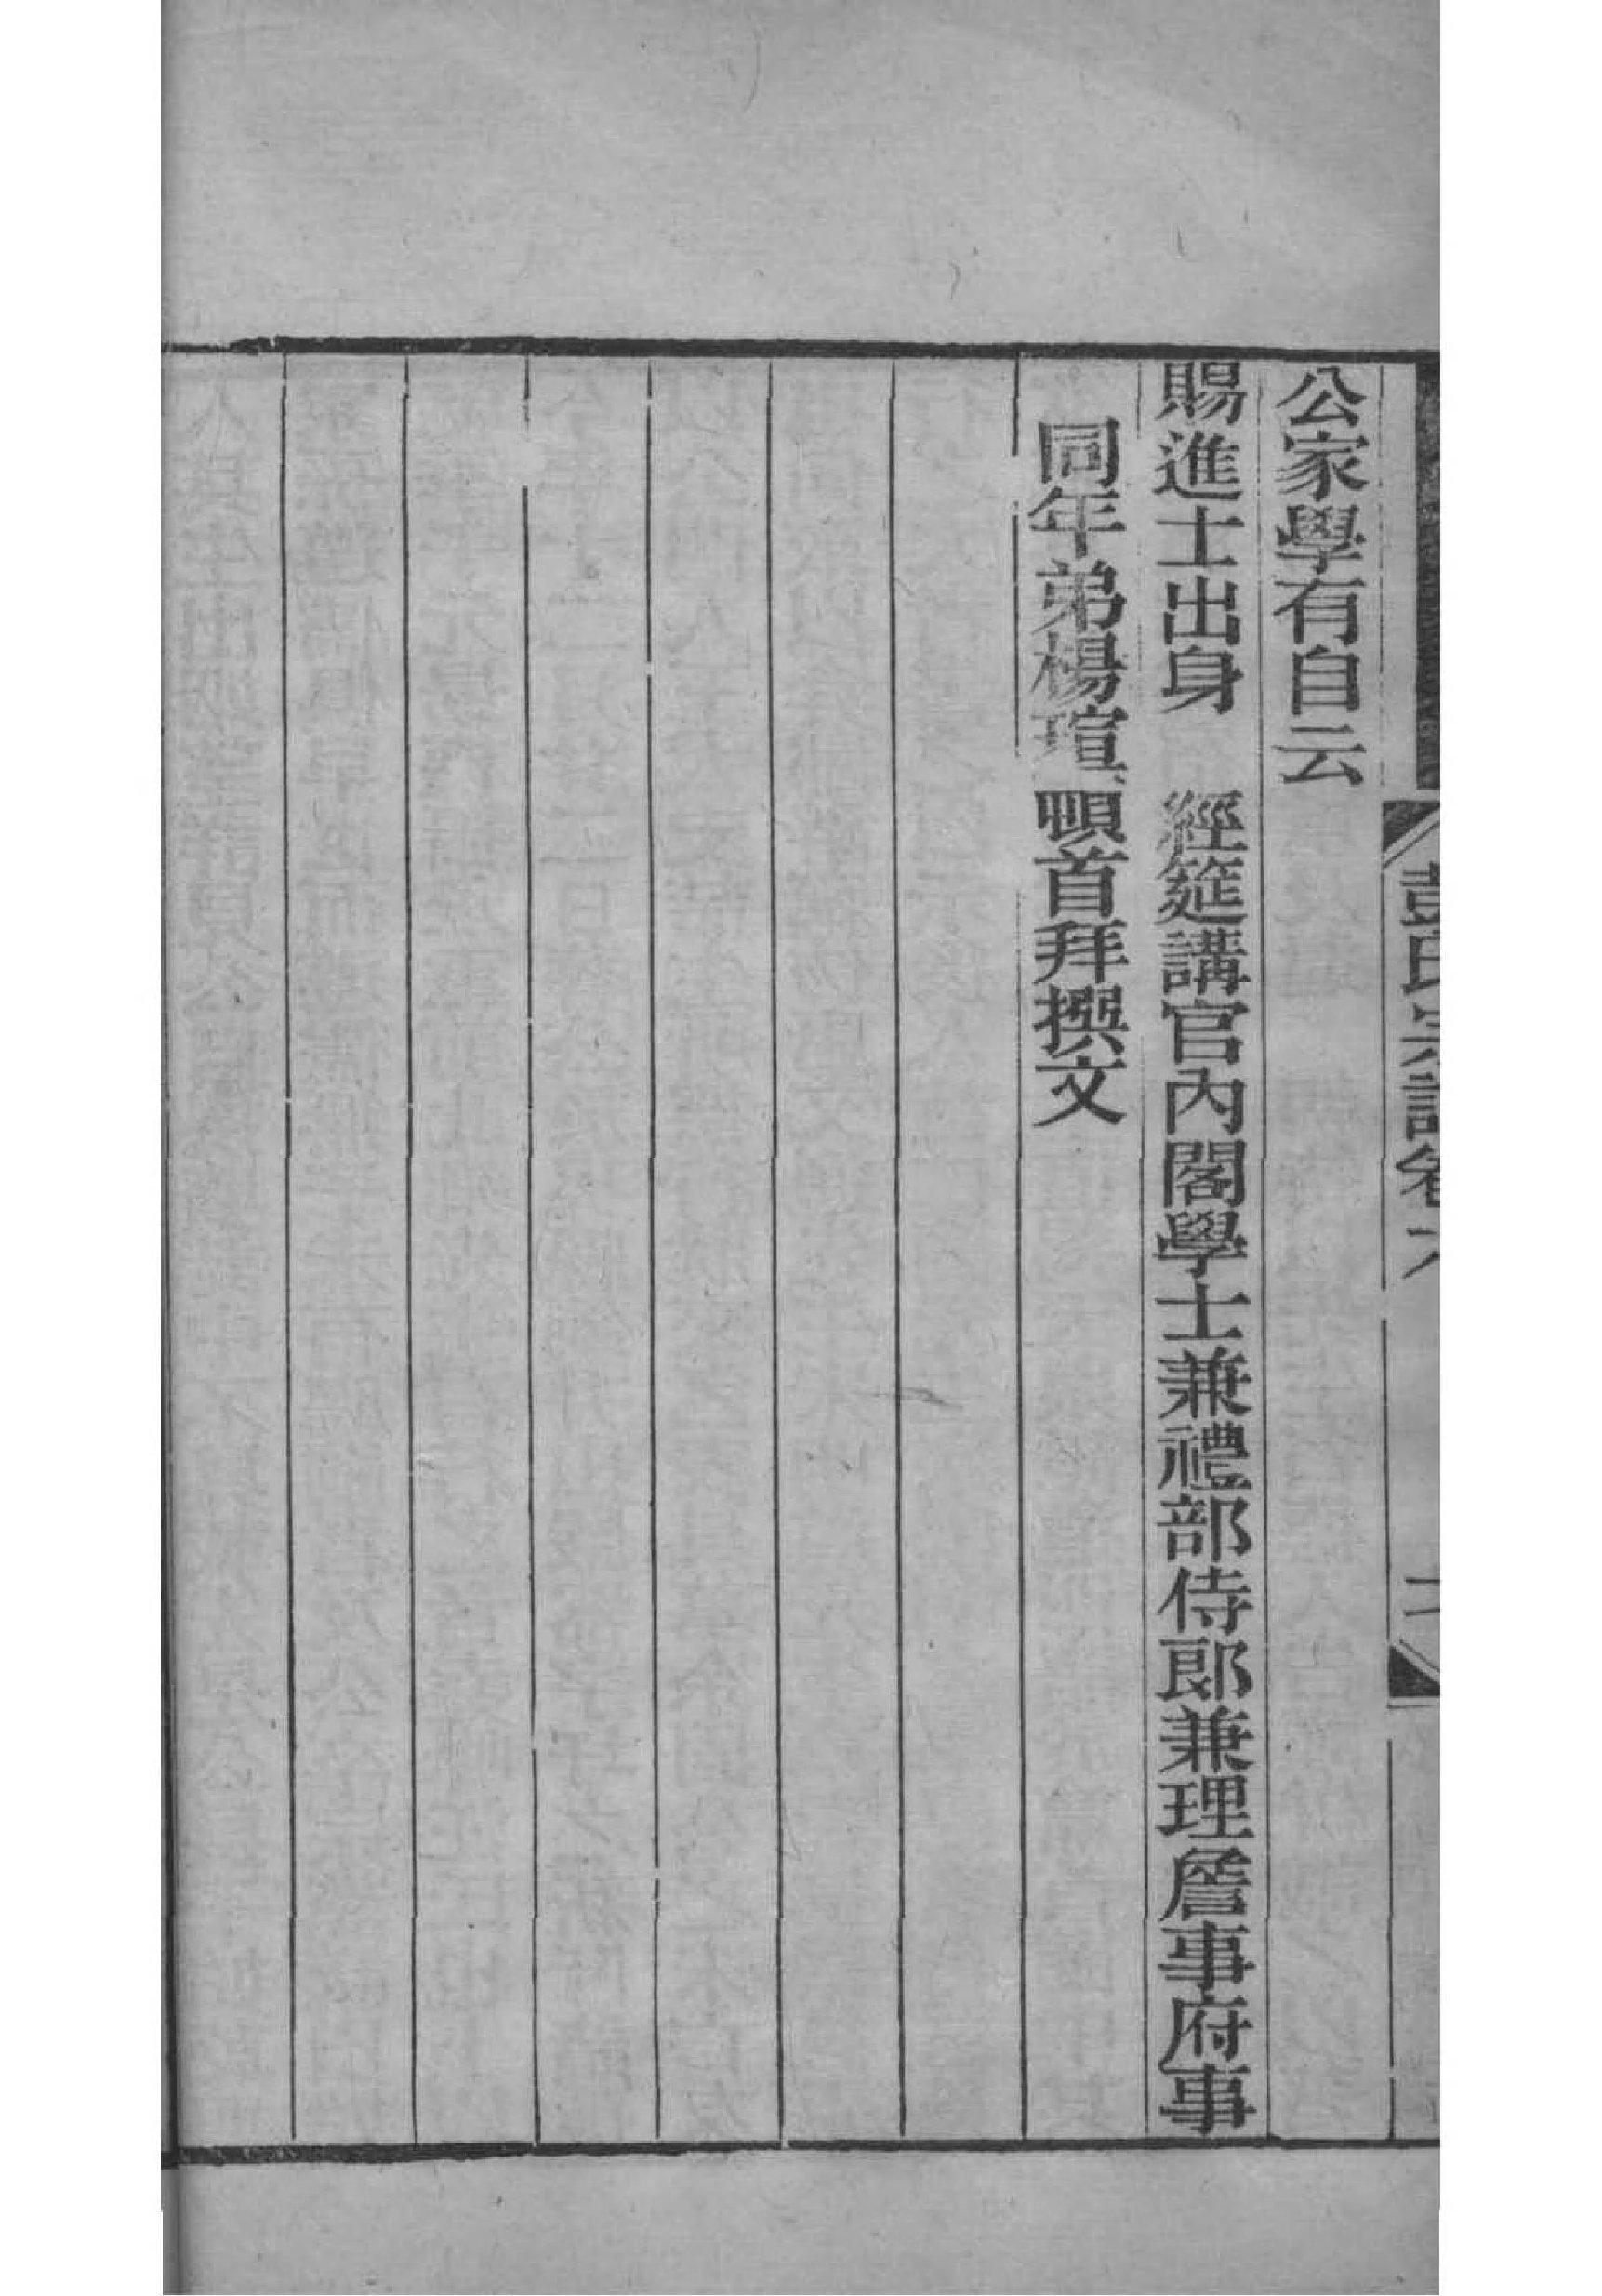 彭氏宗譜卷六
二
公家學有自云
賜進士出身 經筵講官內閣學士兼禮部侍郎兼理詹事府事
同年弟楊瑄頓首拜撰文